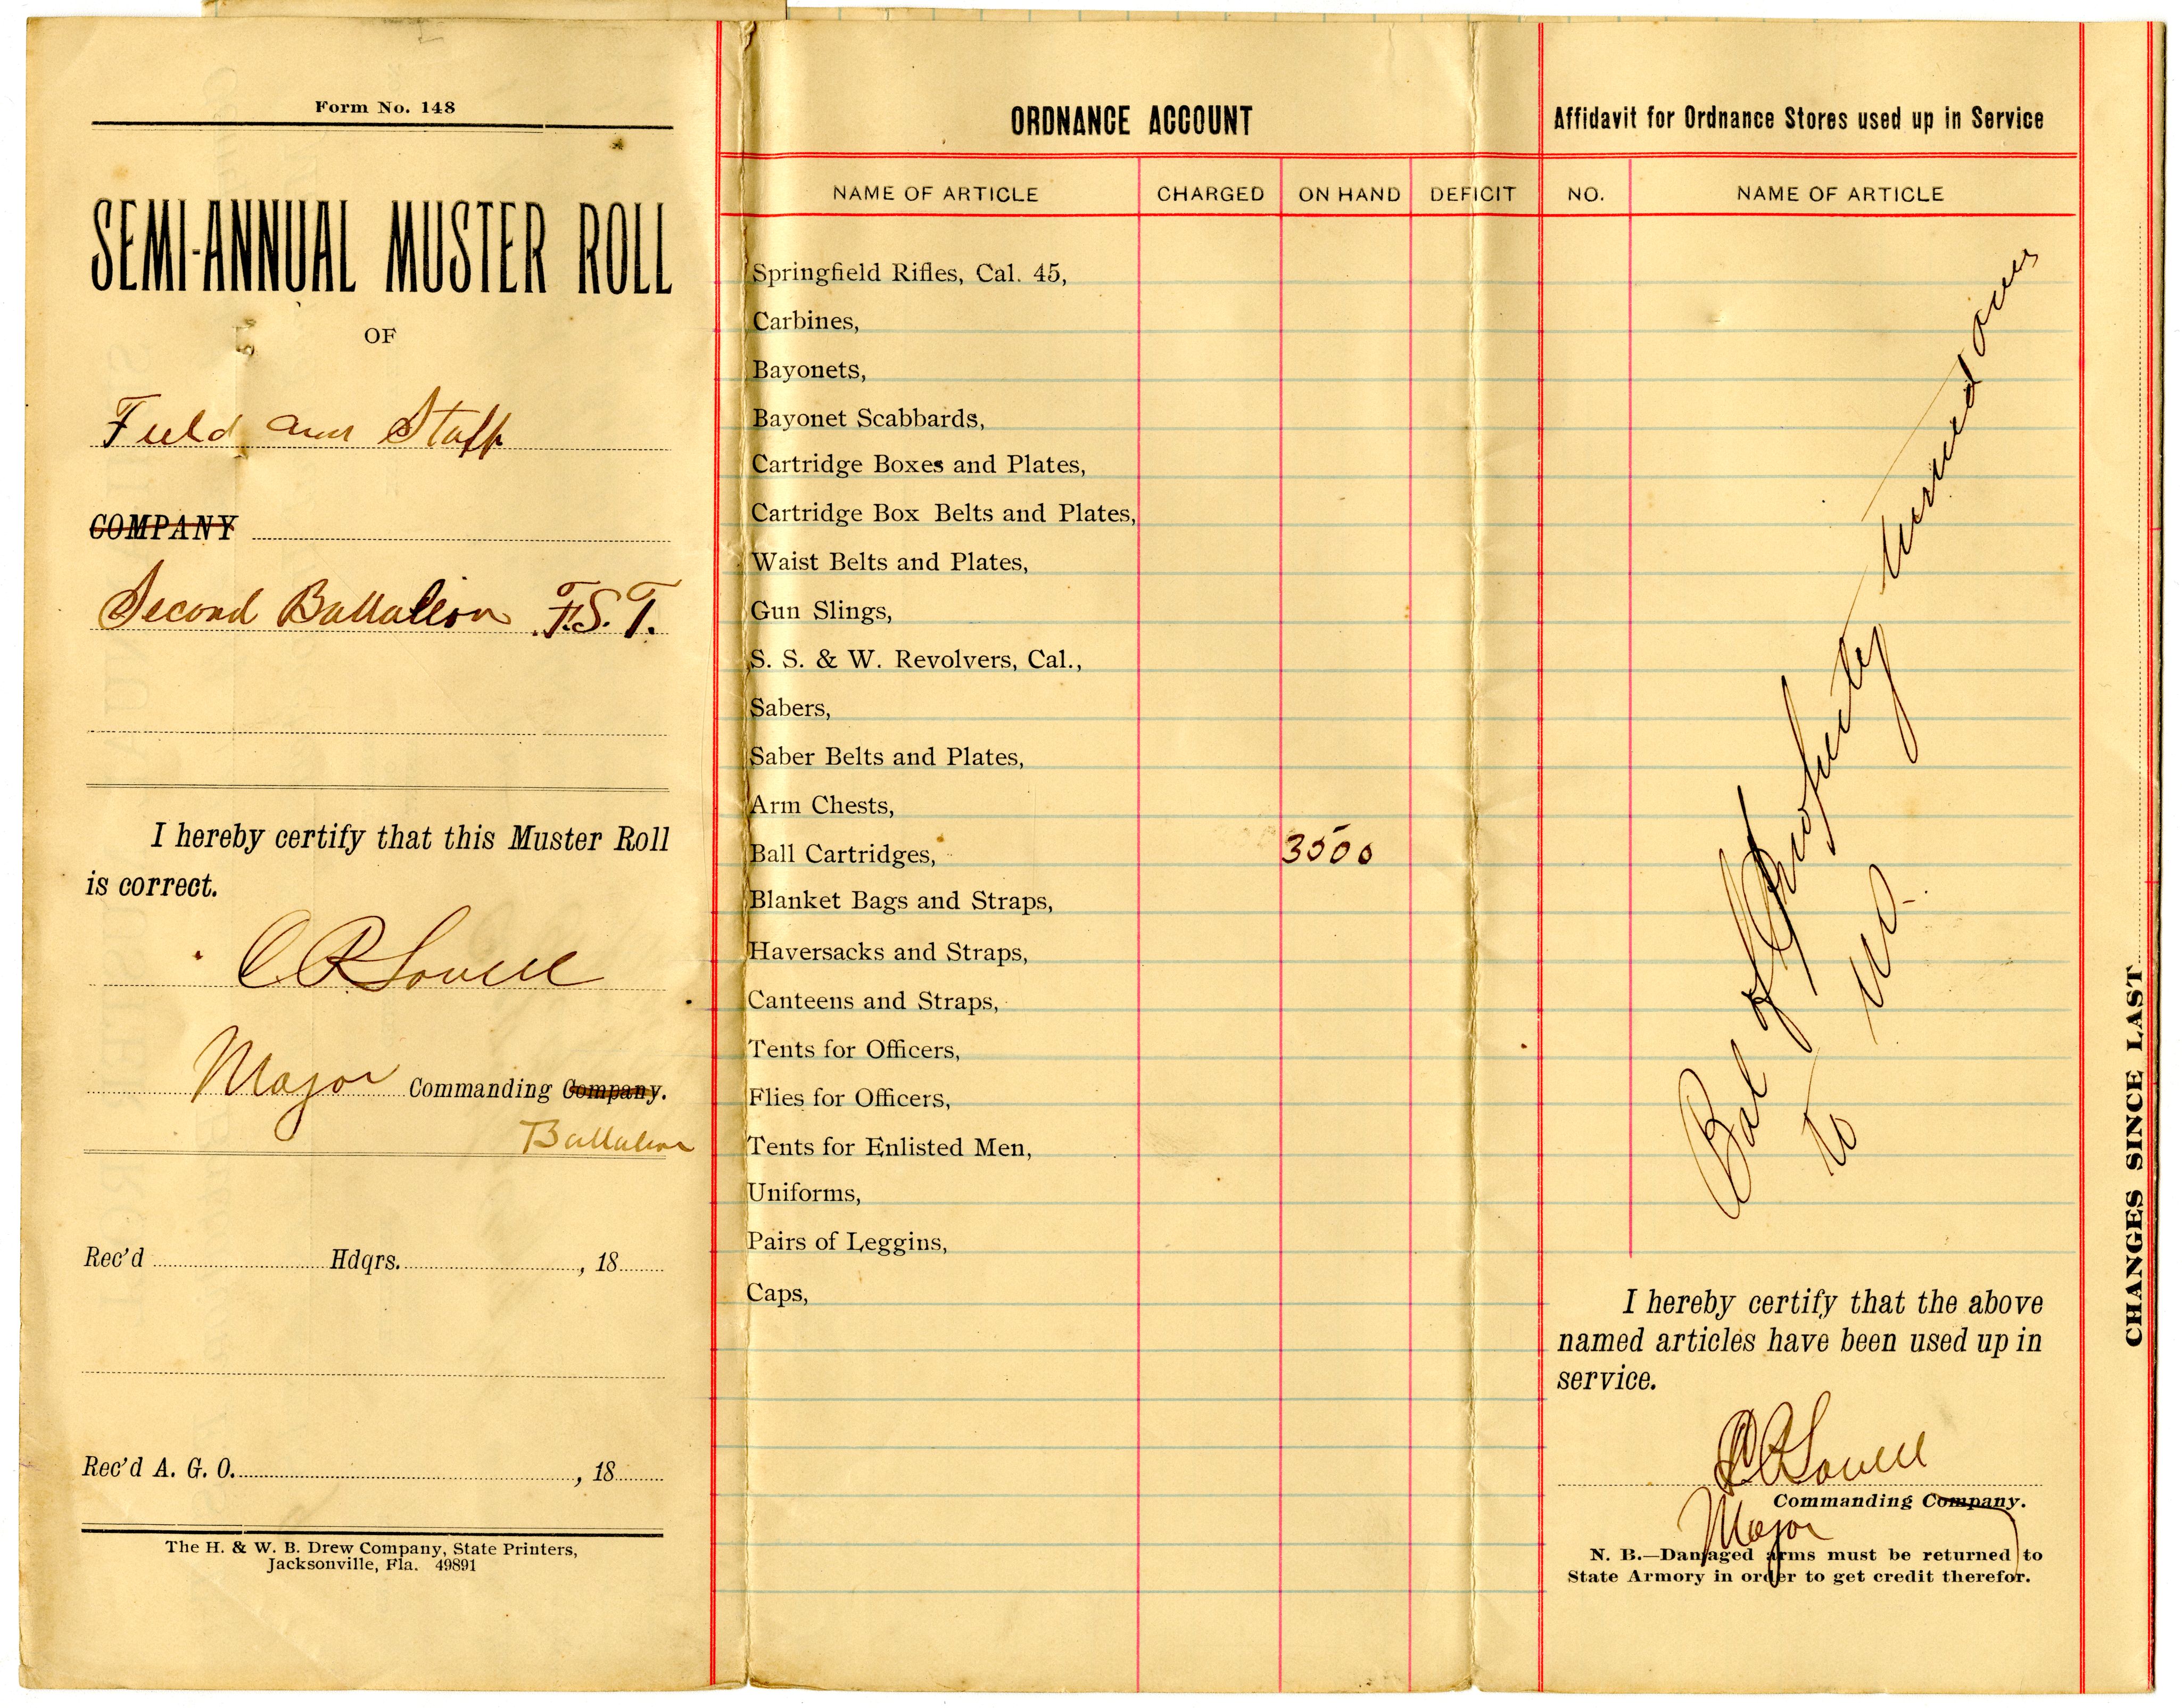 Form No. 148
SEMI-ANNUAL MUSTER ROLL
OF
Field and Staff
COMPANY
Second Battalion F.S.T.
I hereby certify that this Muster Roll
is correct.
C R Lovell
Major Commanding Company.
Battalion
Rec'd Hdqrs. , 18
Rec'd A. G. O. , 18
The H. & W. B. Drew Company, State Printers,
Jacksonville, Fla. 49891
ORDNANCE ACCOUNT
NAME OF ARTICLE CHARGED ON HAND DEFICIT
Springfield Rifles, Cal. 45,
Carbines,
Bayonets,
Bayonet Scabbards,
Cartridge Boxes and Plates,
Cartridge Box Belts and Plates,
Waist Belts and Plates,
Gun Slings,
S. S. & W. Revolvers, Cal.,
Sabers,
Saber Belts and Plates,
Arm Chests,
Ball Cartridges, 3500
Blanket Bags and Straps,
Haversacks and Straps,
Canteens and Straps,
Tents for Officers,
Flies for Officers,
Tents for Enlisted Men,
Uniforms,
Pairs of Leggins,
Caps,
Affidavit for Ordnance Stores used up in Service
NO. NAME OF ARTICLE
Bal of Property turned over
to
I hereby certify that the above
named articles have been used up in
service.
C R Lovell
Commanding Company.
Major
N. B.—Damaged arms must be returned to
State Armory in order to get credit therefor.
CHANGES SINCE LAST